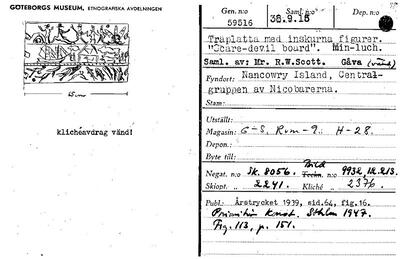 GÖTEBORGS MUSEUM, ETNOGRAFISKA AVDELNINGEN
65 cm
klichéavdrag vänd!
Gen. n:o
59516
Saml. n:o
38.9.15
Dep. n:o
Träplatta med inskurna figurer.
"Scare-devil board". Min-luch.
Saml. av: Mr. R.W.Scott. Gåva (vänd)
Fyndort: Nancowry Island, Central-
gruppen av Nicobarerna.
Stam:
Utställt:
Magasin: G-S, Rum-9. H-28.
Depon.:
Byte till:
Negat. n:o Sk. 8056. Bild n:o 9932, 12.213.
Skiopt. „ 2241. Kliché „ 2376.
Publ.: Årstrycket 1939, sid.64, fig.16.
Primitiv Konst. Sthlm 1947.
Fig. 113, p. 151.